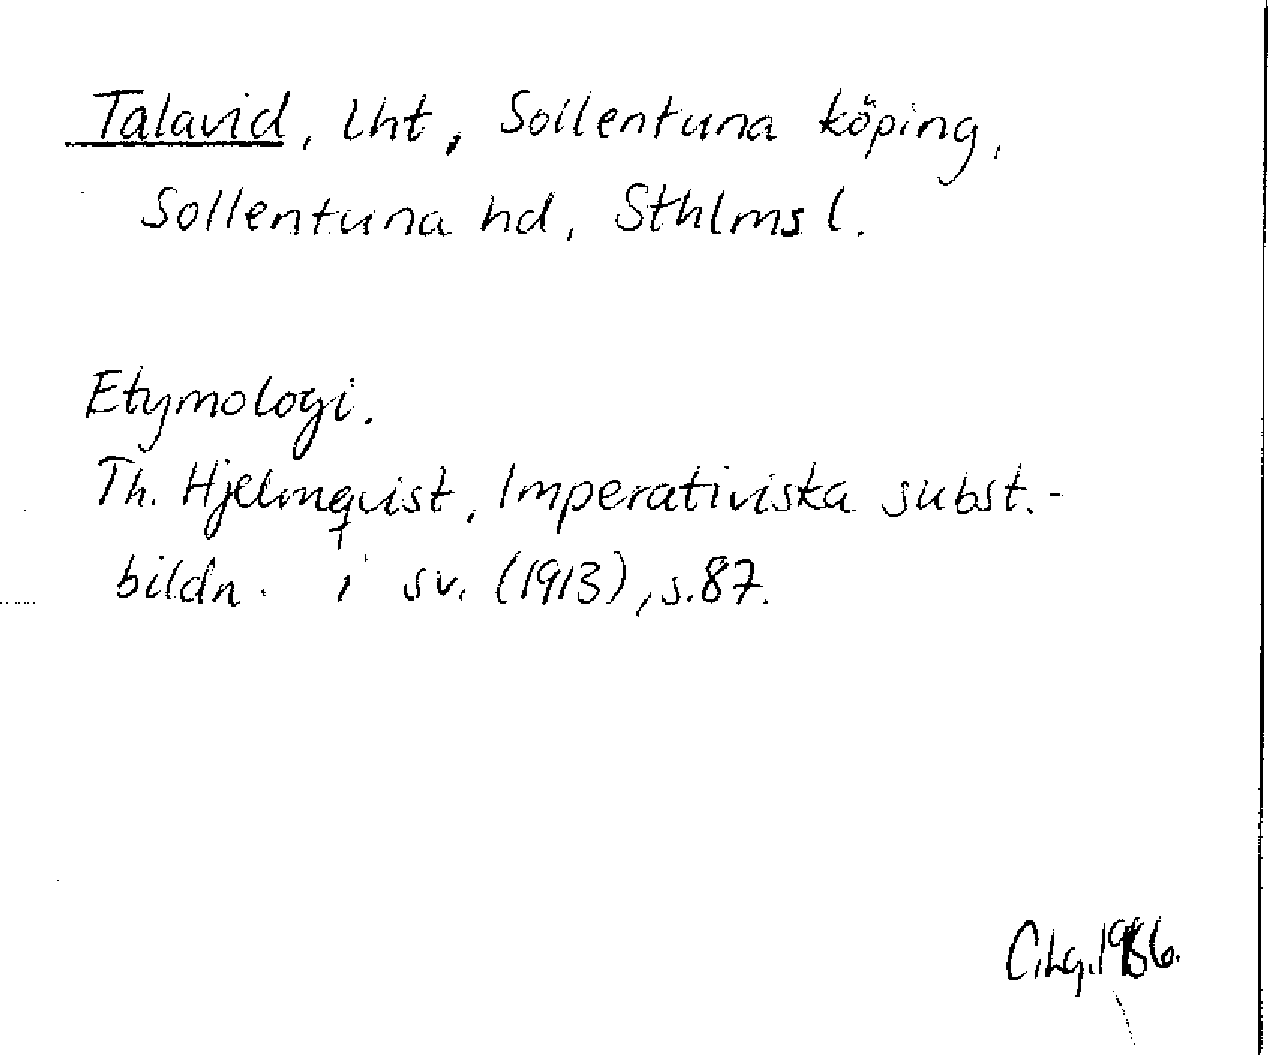 Talavid, Lht, Sollentuna köping,
Sollentuna hd, Sthlms l.
Etymologi.
Th. Hjelmqvist, Imperativiska subst.-
bildn. i sv. (1913), s.87.
C.Lg.1986.